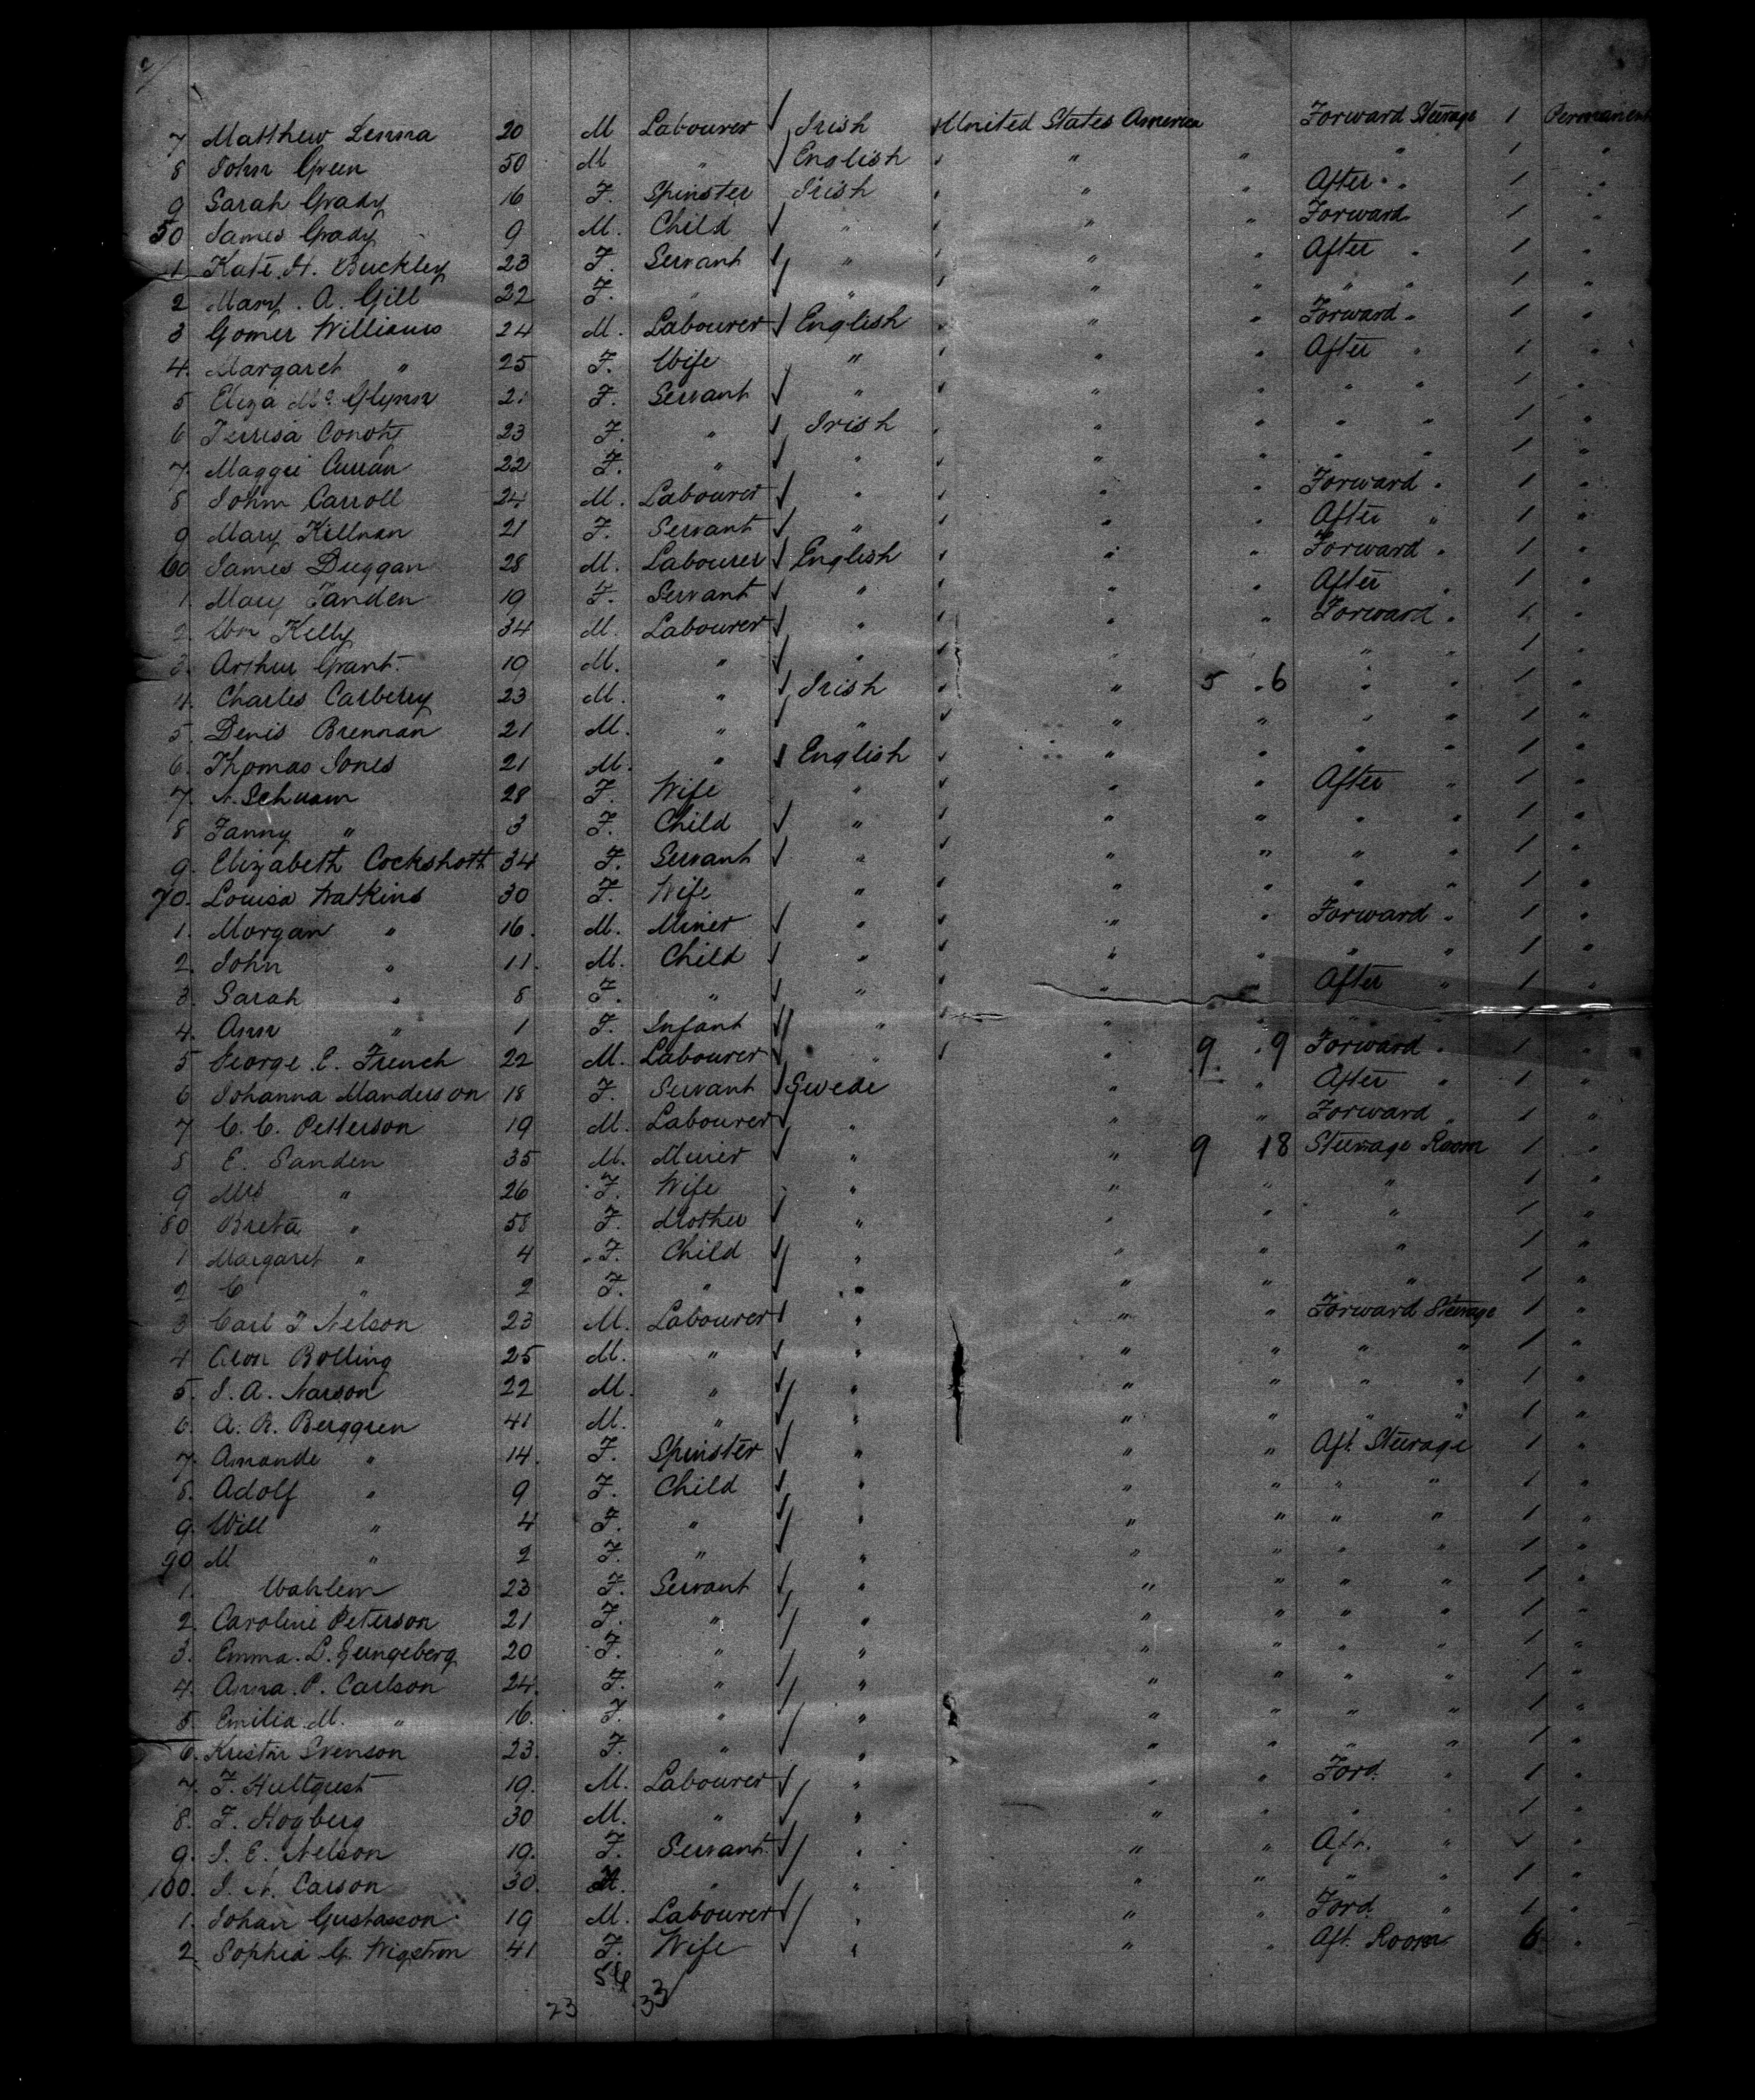 7 Matthew Lenna 20 M Labourer Irish United States America Forward Steerage 1 Permanent
8 John Green 50 M " English " " " 1 "
9 Sarah Grady 16 F. Spinster Irish " " After " 1 "
50 James Grady 9 M. Child " " " Forward 1 "
1 Kate H. Buckley 23 F. Servant " " " After " 1 "
2 Mary. A. Gill 22 F. " " " " " " 1 "
3 Gomer Williams 24 M. Labourer English " " Forward " 1 "
4. Margaret " 25 F. Wife " " " After " 1 "
5 Eliza Mc Glynn 21 F. Servant " " " " " 1 "
6 Terresa Conoty 23 F. " Irish " " " " 1 "
7. Maggie Curran 22 F. " " " " " " 1 "
8 John Carroll 24 M. Labourer " " " Forward " 1 "
9 Mary Killnan 21 F. Servant " " " After " 1 "
60 James Duggan 28 M. Labourer English " " Forward " 1 "
1. Mary Fanden 19 F. Servant " " " After " 1 "
2. Wm Kelly 34 M. Labourer " " " Forward " 1 "
3. Arthur Grant. 19 M. " " " " " 1 "
4. Charles Carberry 23 M. " Irish " 5 . 6 " " 1 "
5. Denis Brennan 21 M. " " " " " " 1 "
6. Thomas Jones 21 M. " English " " " " 1 "
7. N. Schuam 28 F. Wife " " " After " 1 "
8 Fanny " 3 F. Child " " " " " 1 "
9. Elizabeth Cockshott 34 F. Servant " " " " " 1 "
70. Louisa Watkins 30 F. Wife " " " " " 1 "
1. Morgan " 16. M. Miner " " " Forward " 1 "
2. John " 11. M. Child " " " " " 1 "
3. Sarah " 8 F. " " " After " 1 "
4. Ann " 1 F. Infant " " " "
5 George. E. French 22 M. Labourer " " 9 . 9 Forward " 1 "
6 Johanna Manderson 18 F. Servant Swede " " After " 1 "
7 C. C. Petterson 19 M. Labourer " " " Forward " 1 "
8 E. Sanden 35 M. Miner " " 9 18 Steerage Room 1 "
9 Mrs " 26 F. Wife " " " " 1 "
80 Breta " 58 F. Mother " " " " 1 "
1 Margaret " 4 F. Child " " " " 1 "
2 C " 2 F. " " " " " 1 "
3 Carl F Nelson 23 M. Labourer " " " Forward Steerage 1 "
4 Alon Bolling 25 M. " " " " " " 1 "
5. J. A. Narson 22 M. " " " " " " 1 "
6. A. R. Berggren 41 M. " " " " " " 1 "
7. Amande " 14. F. Spinster " " " Aft. Steerage 1 "
8. Adolf " 9 F. Child " " " " " 1 "
9. Will " 4 F. " " " " " " 1 "
90 M " 2 F. " " " " " " 1 "
1. Wahlem 23 F. Servant " " " " " 1 "
2. Caroline Peterson 21 F. " " " " " " 1 "
3. Emma. L. Gungeberg 20 F. " " " " " " 1 "
4. Anna. P. Carlson 24. F. " " " " " " 1 "
5. Emilia. M. " 16. F. " " " " " " 1 "
6. Kristin Svenson 23. F. " " " " " " 1 "
7. F. Hultquest 19. M. Labourer " " " Ford. " 1 "
8. F. Hogberg 30 M. " " " " " " 1 "
9. J. E. Nelson 19. F. Servant " " " Aft. " 1 "
100. J. N. Carson 30. " " " " " " 1 "
1. Johan Gustasson 19 M. Labourer " " " Ford. " 1 "
2 Sophia G. Wigstrom 41 F. Wife " " " Aft. Room 6 "
23 33